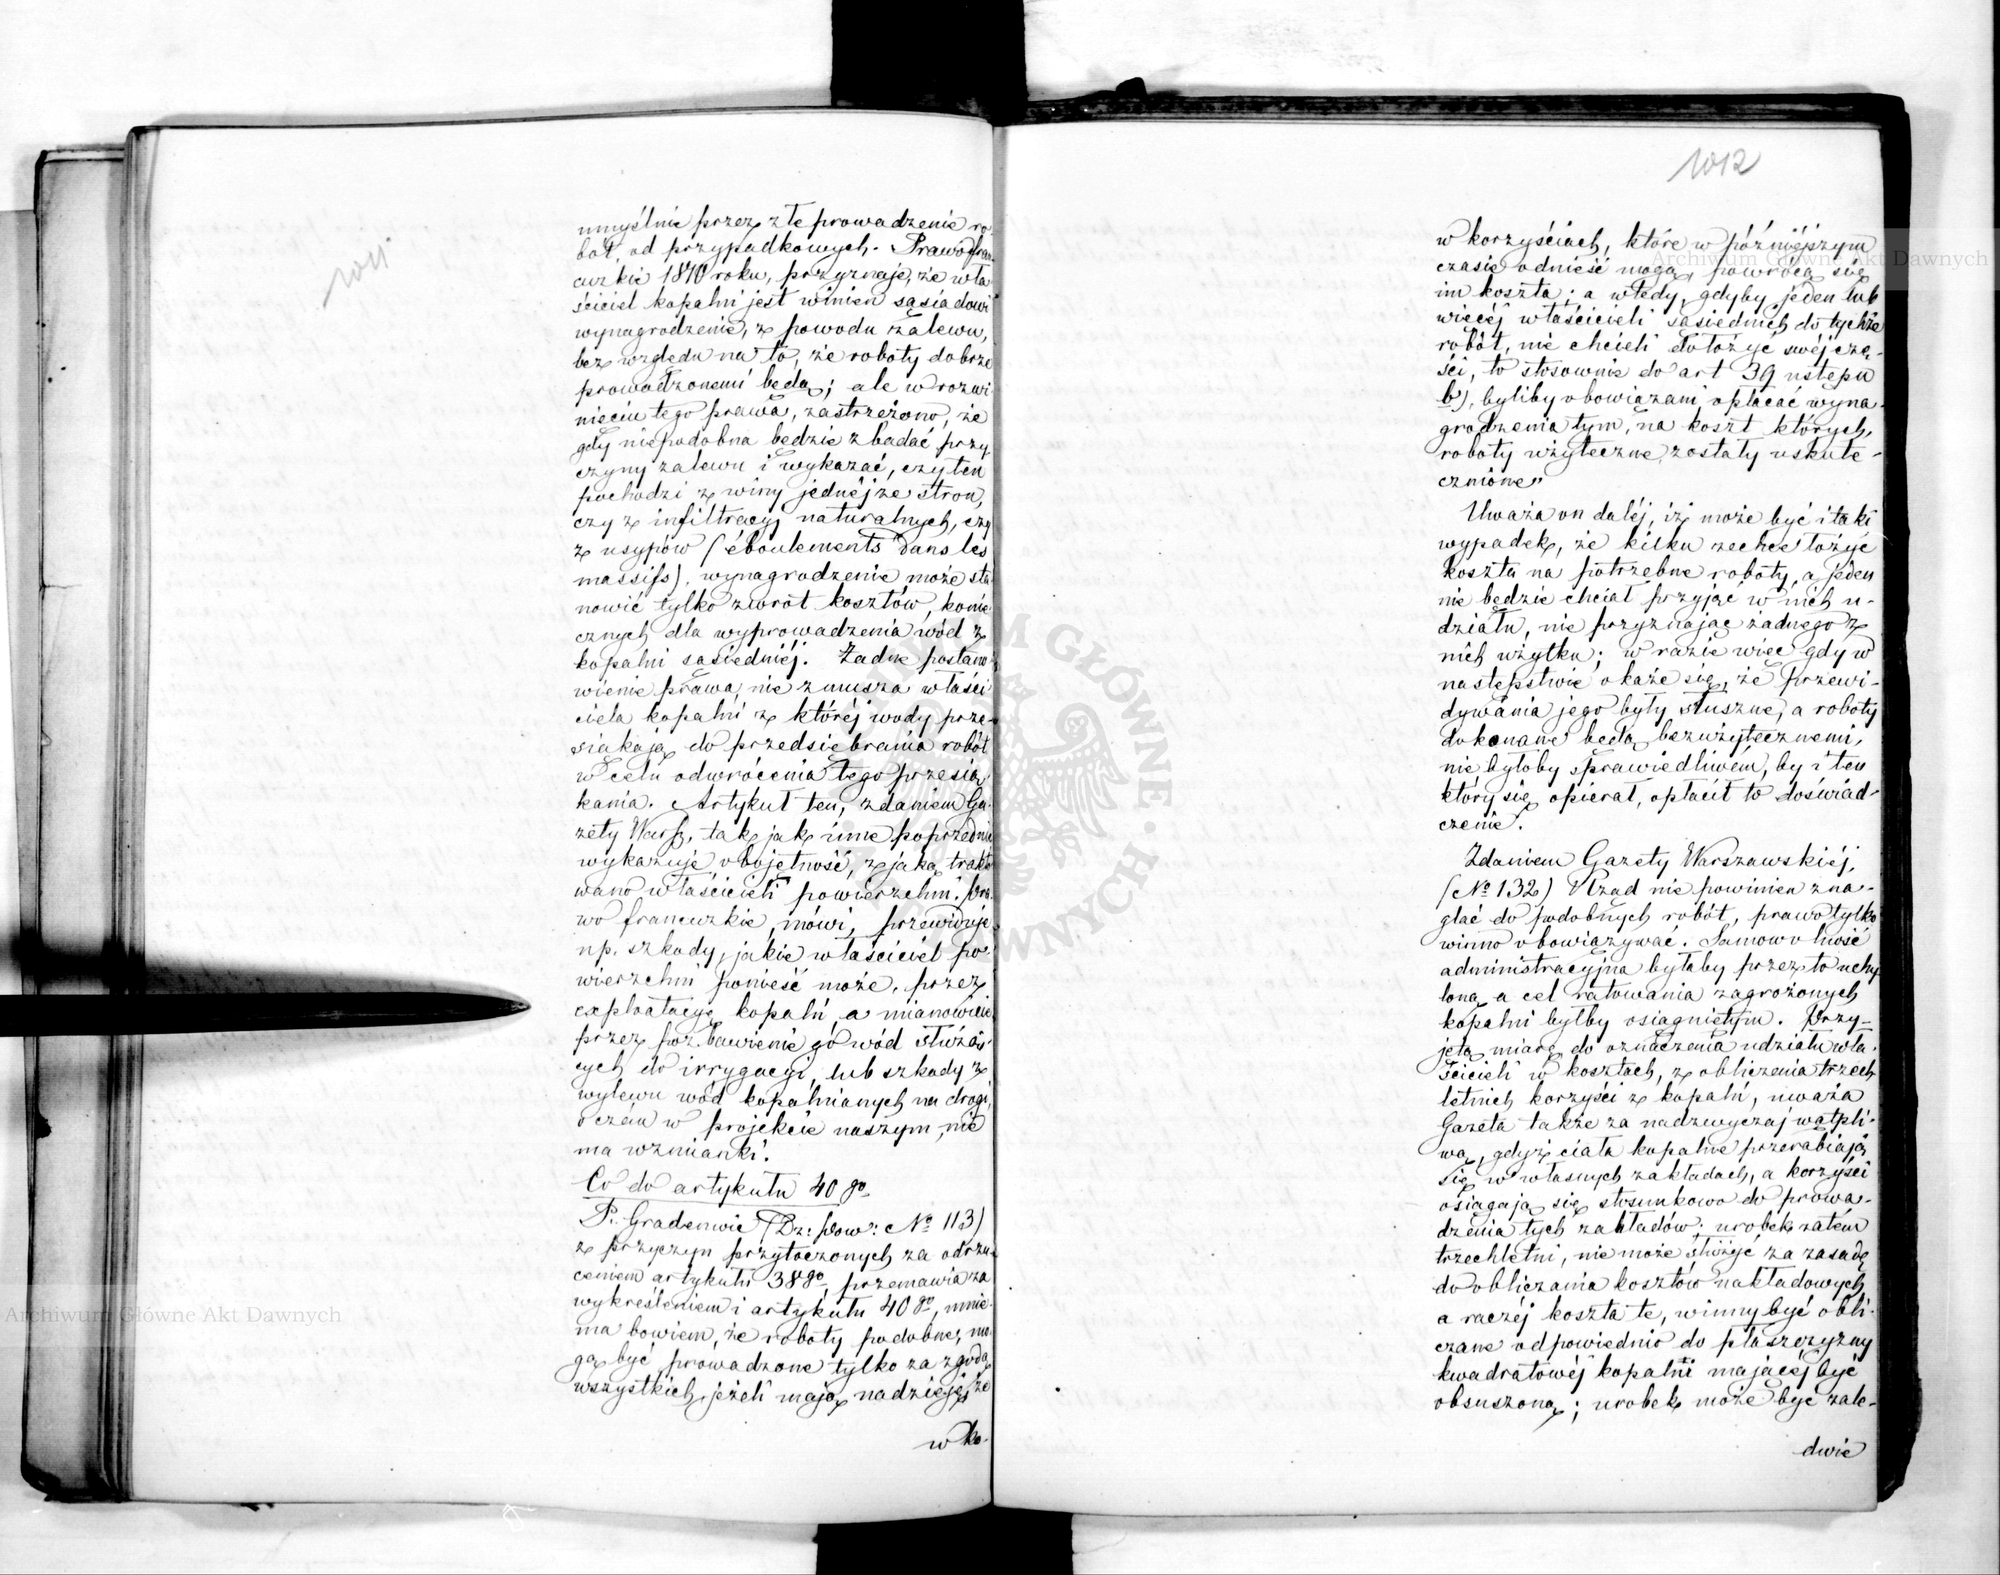 1011
umyślnie przez złe prowadzenie ro-
bót, od przypadkowych. Prawo fran-
cuzkie 1810 roku, przyznaje, że wła
ściciel kopalni jest winien sąsiadowi
wynagrodzenie, z powodu zalewu,
bez względu na to, że roboty dobrze
prowadzonemi będą; ale w rozwi
nięciu tego prawa, zastrzeżono, że
gdy niepodobna będzie zbadać przy
czyny zalewu i wykazać, czy ten
pochodzi z winy jednéj ze stron,
czy z infiltracyj naturalnych, czy
z usypów (éboulements dans les
massifs), wynagrodzenie może sta
nowić tylko zwrot kosztów, konie
cznych dla wyprowadzenia wód z
kopalni sąsiedniéj. Żadne postano
wienie prawa, nie zmusza właści
ciela kopalni z któréj wody prze-
siąkają do przedsiębrania robót
w celu odwrócenia tego przesią
kania. Artykuł ten, zdaniem Ga-
zety Warsz, tak jak inne poprzednie
wykazuje obojętność, z jaką trakto
wano właścicieli powierzchni. Pra
wo francuzkie, mówi, przewiduje
np. szkody, jakie właściciel po-
wierzchni ponieść może, przez
exploatacyę kopalń, a mianowicie
przez poz bawienie go wód służą-
cych do irrygacyi, lub szkody z
wylewu wód kopalnianych na drogi,
o czém w projekcie naszym, nie
ma wzmianki.
Co do artykułu 40go
P. Gradenwic (Dz: Pow: No 113)
z przyczyn przytoczonych za odrzu-
ceniem artykułu 38go, przemawia za
wykreśleniem i artykułu 40go, mnie-
ma bowiem, że roboty podobne, mo
gą być prowadzone tylko za zgodą
wszystkich, jeżeli mają nadzieję, że
w ko-
1012
w korzyściach, które w późniéjszym
czasie odnieść mogą, powrócą się
im koszta; a wtedy, gdyby jeden lub
więcéj właścicieli sąsiednich do tychże
robót, nie chcieli dołożyć swéj czę-
ści, to stosownie do art 39 ustępu
b), byliby obowiązani opłacać wyna-
grodzenia tym, na koszt których,
roboty użyteczne, zostały uskute-
cznione"
Uważa on daléj, iż może być i taki
wypadek, że kilku zechce łożyć
koszta na potrzebne roboty, a jeden
nie będzie chciał przyjąć w nich u-
działu, nie przyznając żadnego z
nich użytku; w razie więc gdy w
następstwie okaże się, że przewi-
dywania jego były słuszne, a roboty
dokonane będą bezużytecznemi,
nie byłoby sprawiedliwém, by i ten
który się opierał, opłacił to doświad-
czenie.
Zdaniem Gazety Warszawskiéj,
(No 132) Rząd nie powinien zna-
glać do podobnych robót, prawo tylko
winno obowiązywać. Samowolność
administracyjna byłaby przez to uchy
loną, a cel ratowania zagrożonych
kopalni byłby osiągniętym. Przy-
jętą miarę do oznaczenia udziału wła-
ścicieli w kosztach, z obliczenia trzech
letnich korzyści z kopalń, uważa
Gazeta także za nadzwyczaj wątpli-
wą, gdyż ciała kopalne przerabiają
się w własnych zakładach, a korzyści
osiągają się stosunkowo do prowa-
dzenia tych zakładów; urobek zatém
trzechletni, nie może służyć za zasadę
do obliczania kosztów nakładowych,
a raczéj koszta te, winny być obli-
czane odpowiednio do płaszczyzny
kwadratowéj kopalni mającéj być
obsuszoną; urobek może być zale-
dwie
Archiwum Główne Akt Dawnych
Archiwum Główne Akt Dawnych